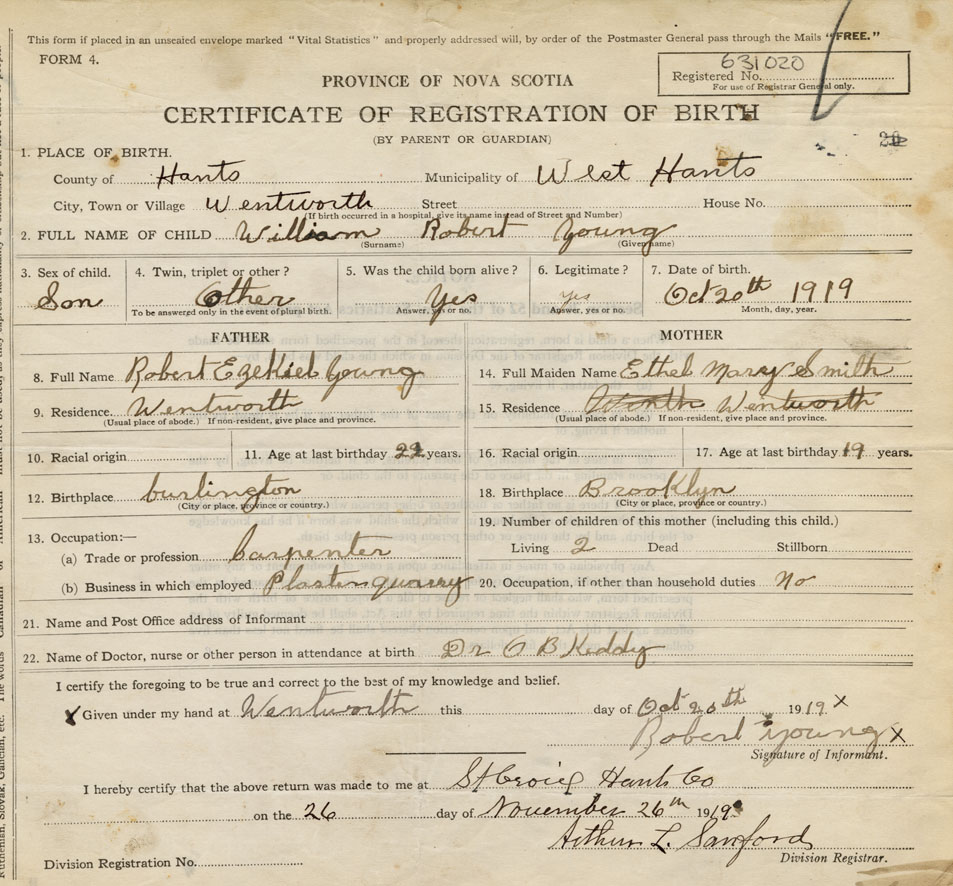 This form if placed in an unsealed envelope marked "Vital Statistics" and properly addressed will, by order of the Postmaster General pass through the Mails "FREE."
FORM 4.
631020
Registered No.
For use of Registrar General only.
PROVINCE OF NOVA SCOTIA
CERTIFICATE OF REGISTRATION OF BIRTH
(BY PARENT OR GUARDIAN)
1. PLACE OF BIRTH.
County of Hants Municipality of West Hants
City, Town or Village Wentworth Street House No.
(If birth occurred in a hospital, give its name instead of Street and Number)
2. FULL NAME OF CHILD William Robert Young
(Surname) (Given name)
3. Sex of child. 4. Twin, triplet or other? 5. Was the child born alive? 6. Legitimate? 7. Date of birth.
Son Other Yes yes Oct 20th 1919
To be answered only in the event of plural birth. Answer, yes or no. Answer, yes or no. Month, day, year.
FATHER MOTHER
8. Full Name Robert Ezekiel Young 14. Full Maiden Name Ethel Mary Smith
9. Residence. Wentworth 15. Residence Wentworth
(Usual place of abode.) If non-resident, give place and province. (Usual place of abode.) If non-resident, give place and province.
10. Racial origin 11. Age at last birthday years. 16. Racial origin 17. Age at last birthday 19 years.
12. Birthplace burlington 18. Birthplace Brooklyn
(City or place, province or country.) (City or place, province or country.)
13. Occupation:— 19. Number of children of this mother (including this child.)
(a) Trade or profession Carpenter Living 2 Dead Stillborn
(b) Business in which employed Plaster quarry 20. Occupation, if other than household duties No
21. Name and Post Office address of Informant
22. Name of Doctor, nurse or other person in attendance at birth Dr O B Keddy
I certify the foregoing to be true and correct to the best of my knowledge and belief.
X Given under my hand at Wentworth this day of Oct 20th 1919 X
Robert Young X
Signature of Informant.
I hereby certify that the above return was made to me at St Croix Hants Co
on the 26 day of November 26th 1919
Arthur L. Sanford
Division Registration No. Division Registrar.